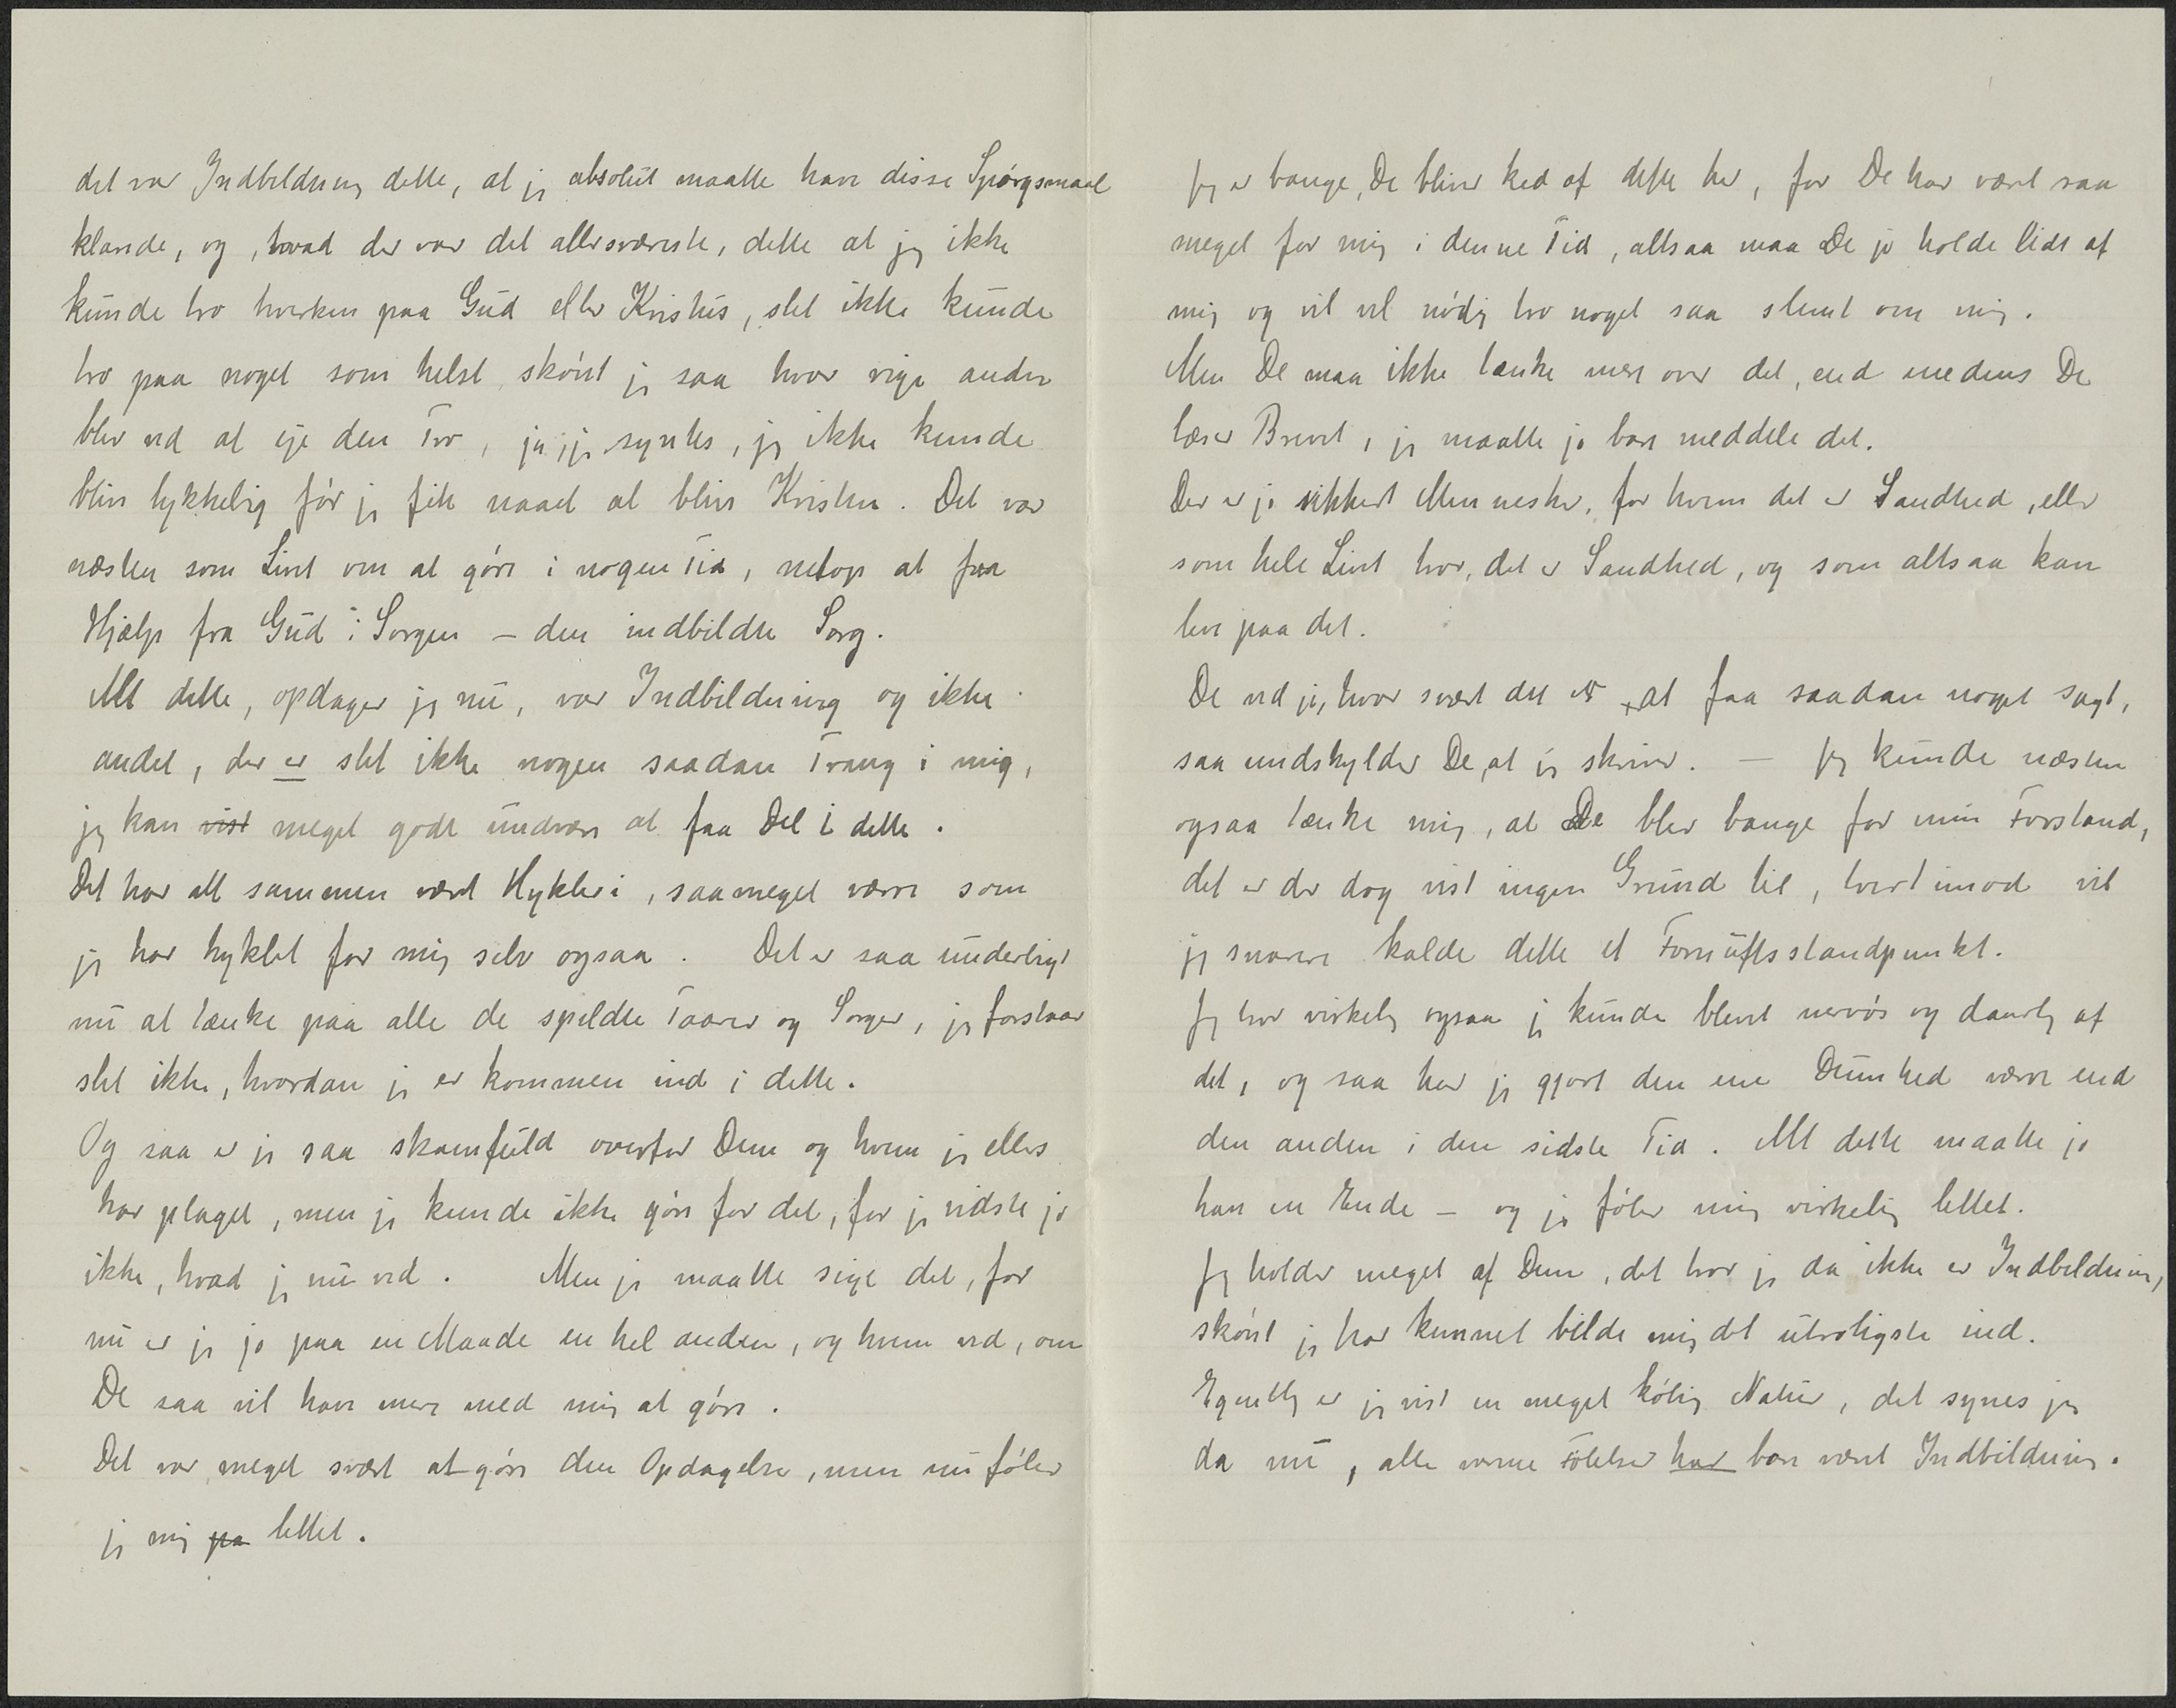 det var Indbildning dette, at jeg absolut maatte have disse Spørgsmaal
klarede, og, hvad der var det allersværeste, dette at jeg ikke
kunde tro hverken paa Gud eller Kristus, slet ikke kunde
tro paa noget som helst, skønt jeg saa hvor rige andre
blev ved at eje den Tro, ja, jeg syntes, jeg ikke kunde
blive lykkelig før jeg fik naaet at blive Kristen. Det var
næsten som Livet om at gøre i nogen Tid, netop at faa
Hjælp fra Gud i Sorgen – den indbildte Sorg.
Alt dette, opdager jeg nu, var Indbildning og ikke
andet, der er slet ikke nogen saadan Trang i mig,
jeg kan vist meget godt undvære at faa Del i dette.
Det har alt sammen været Hykleri, saameget værre som
jeg har hyklet for mig selv ogsaa. Det er saa underligt
nu at tænke paa alle de spildte Taarer og Sorger, jeg forstaar
slet ikke, hvordan jeg er kommen ind i dette.
Og saa er jeg saa skamfuld overfor Dem og hvem jeg ellers
har plaget, men jeg kunde ikke gøre for det, for jeg vidste jo
ikke, hvad jeg nu ved. Men jeg maatte sige det, for
nu er jeg jo paa en Maade en hel anden, og hvem ved, om
De saa vil have mere med mig at gøre.
Det var meget svært at gøre den Opdagelse, men nu føler
jeg mig paa lettet.
Jeg er bange, De bliver ked af dette her, for De har været saa
meget for mig i denne Tid, altsaa maa De jo holde lidt af
mig og vil vel nødig tro noget saa slemt om mig.
Men De maa ikke tænke mere over det, end medens De
læser Brevet, jeg maatte jo bare meddele det.
Der er jo sikkert Mennesker, for hvem det er Sandhed, eller
som hele Livet tror, det er Sandhed, og som altsaa kan
leve paa det.
De ved jo, hvor svært det er, at faa saadan noget sagt,
saa undskylder De, at jeg skriver. — Jeg kunde næsten
ogsaa tænke mig, at De blev bange for min Forstand,
det er der dog vist ingen Grund til, tvertimod vil
jeg snarere kalde dette et Fornuftsstandpunkt.
Jeg tror virkelig ogsaa jeg kunde blevet nervøs og daarlig af
det, og saa har jeg gjort den ene Dumhed værre end
den anden i den sidste Tid. Alt dette maatte jo
have en Ende – og jeg føler mig virkelig lettet.
Jeg holder meget af Dem, det tror jeg da ikke er Indbildning,
skønt jeg har kunnet bilde mig det utroligste ind.
Egentlig er jeg vist en meget kølig Natur, det synes jeg
da nu, alle varme Følelser har bare været Indbildning.